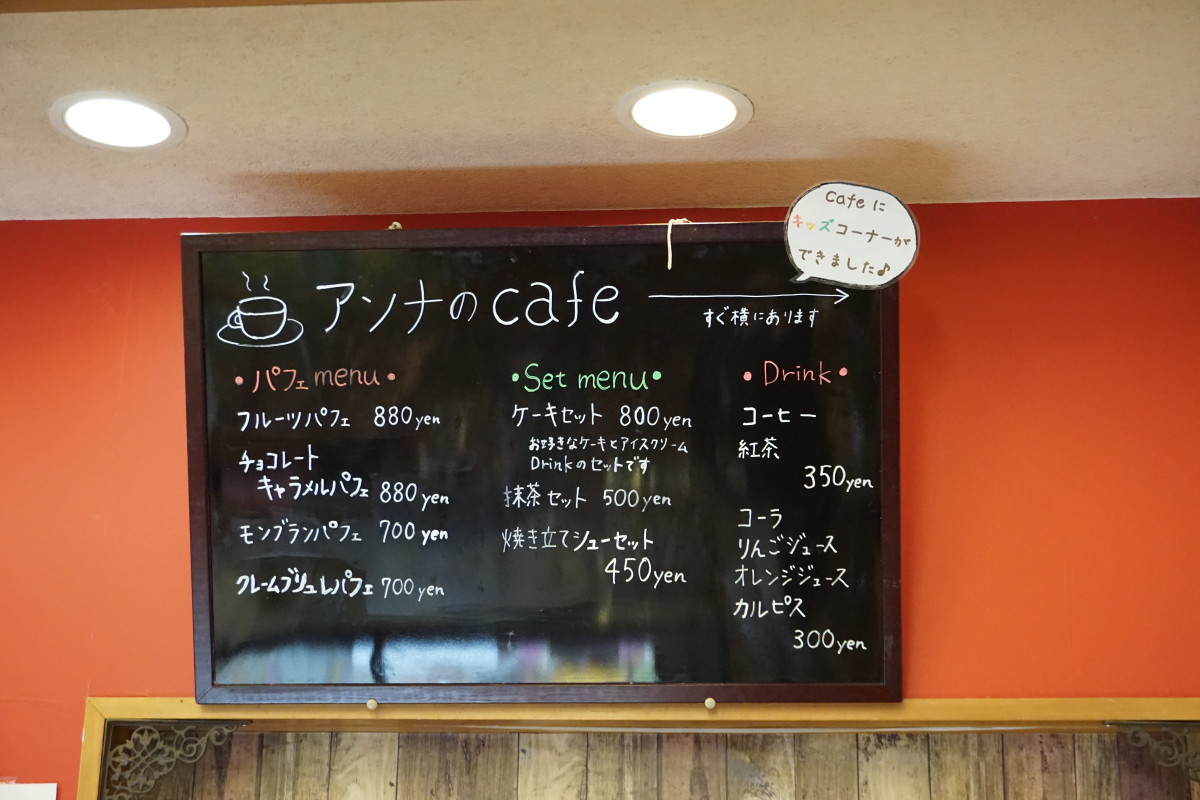 Cafeに
キッズコーナーが
できました♪
アンナのcafe
すぐ横にあります
・パフェmenu・
フルーツパフェ 880yen
チョコレート
キャラメルパフェ 880yen
モンブランパフェ 700yen
クレームブリュレパフェ 700yen
・Set menu・
ケーキセット 800yen
お好きなケーキとアイスクリーム
Drinkのセットです
抹茶セット 500yen
焼き立てシューセット
450yen
・Drink・
コーヒー
紅茶
350yen
コーラ
りんごジュース
オレンジジュース
カルピス
300yen